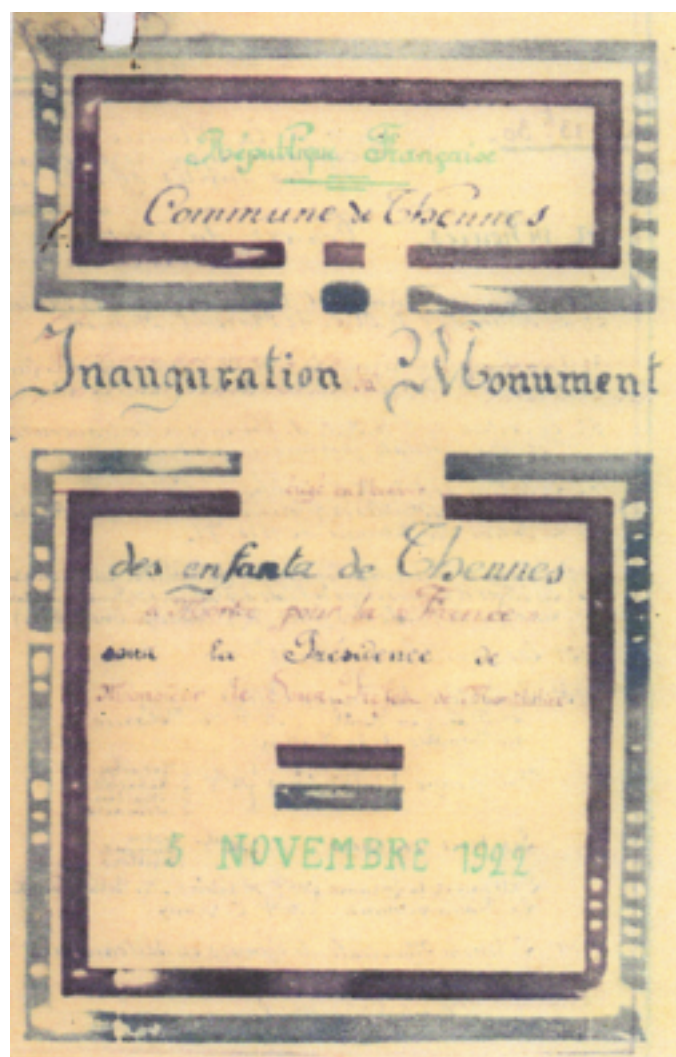 République Française
Commune de Thennes
Inauguration du Monument
érigé en l'honneur
des enfants de Thennes
« Morts pour la France »
sous la Présidence de
Monsieur le Sous-Préfet de Montdidier
5 NOVEMBRE 1922